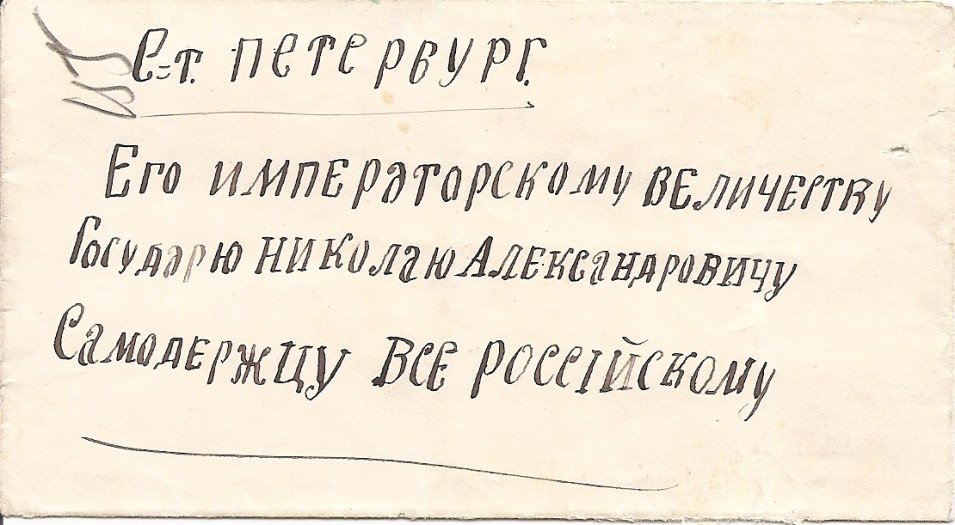 С=т. Петербург.
Его императорскому величеству
Государю Николаю Александровичу
Самодержцу Все Россiйскому